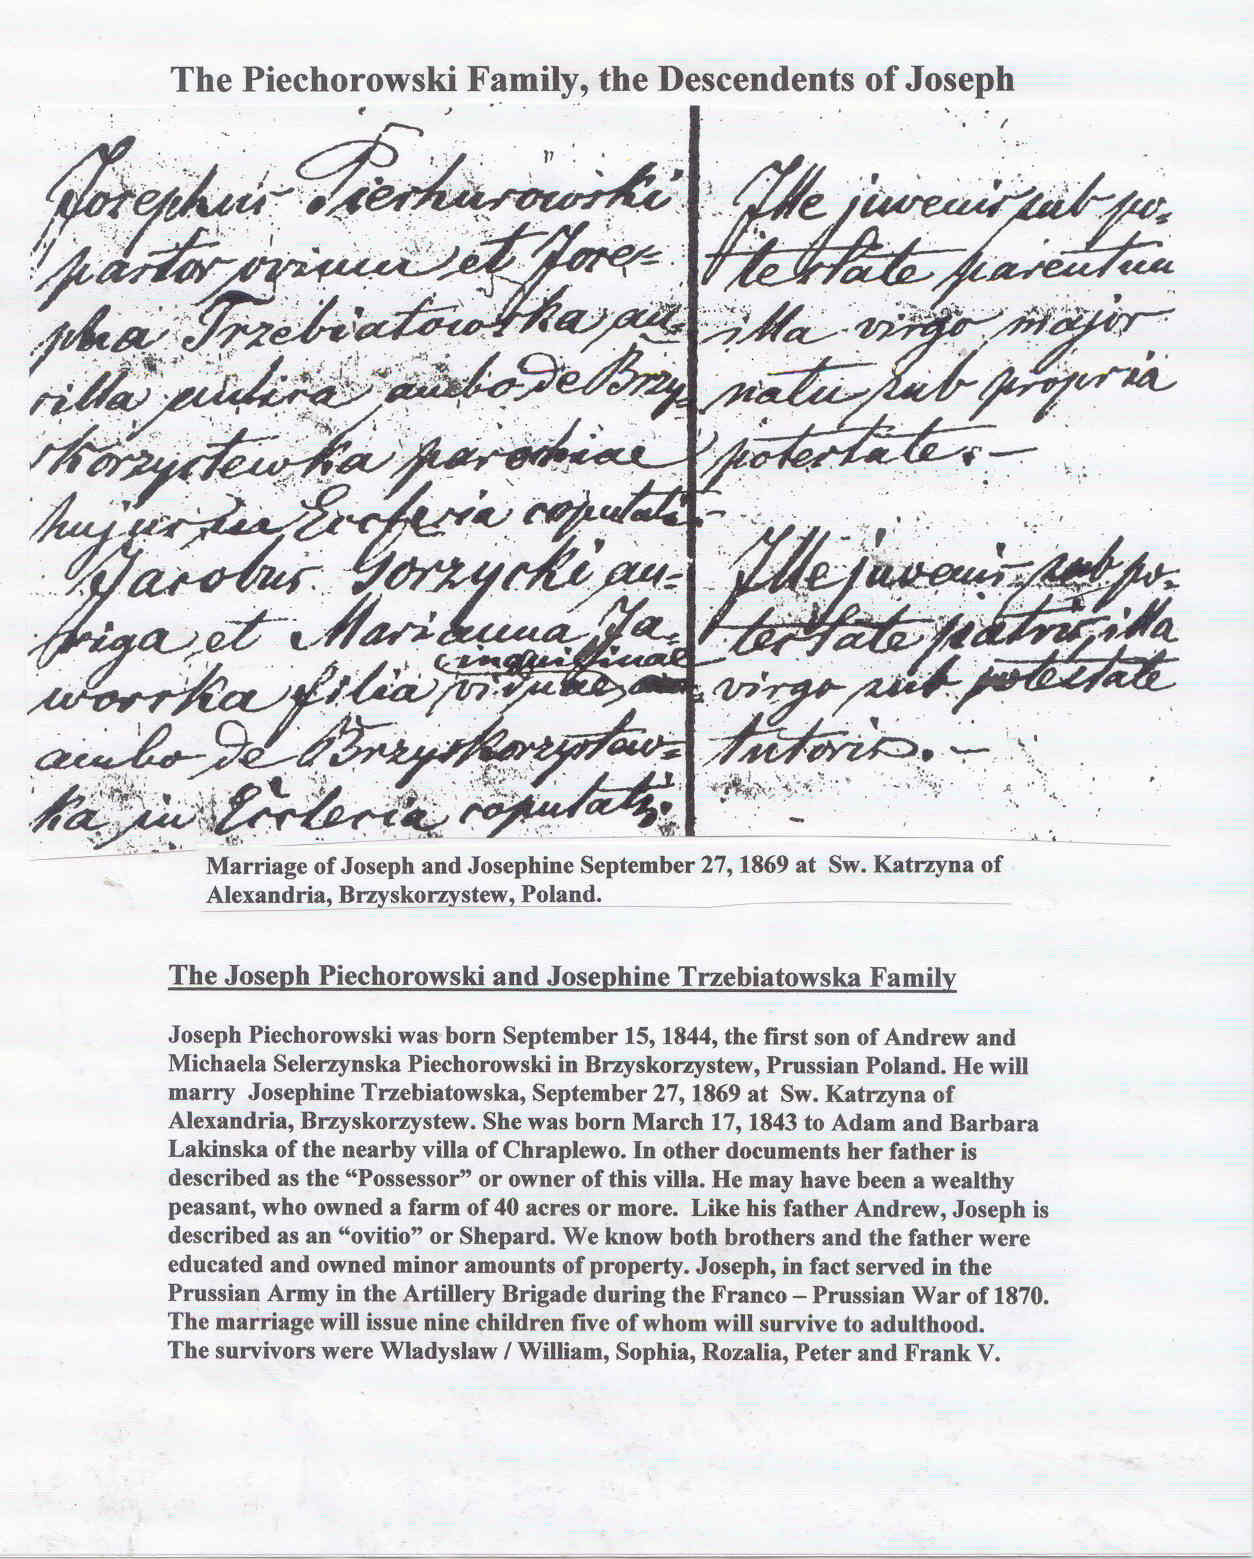 The Piechorowski Family, the Descendents of Joseph
Josephus Piechurowski
pastor ovium et Jose=
pha Trzebiatowska an=
cilla ambo de Brzy=
skorzystewka parochiae
hujus in Ecclesia copulati
Jacobus Gorzycki au=
riga et Marianna Ja=
inquilinae
worska filia viduae
ambo de Brzyskorzystew=
ka in Ecclesia copulati.
Ille juvenis sub po=
testate parentum
illa virgo major
natu sub propria
potestate. –
Ille juvenis sub po=
testate patris, illa
virgo sub potestate
tutoris. –
Marriage of Joseph and Josephine September 27, 1869 at  Sw. Katrzyna of
Alexandria, Brzyskorzystew, Poland.
The Joseph Piechorowski and Josephine Trzebiatowska Family
Joseph Piechorowski was born September 15, 1844, the first son of Andrew and
Michaela Selerzynska Piechorowski in Brzyskorzystew, Prussian Poland. He will
marry  Josephine Trzebiatowska, September 27, 1869 at  Sw. Katrzyna of
Alexandria, Brzyskorzystew. She was born March 17, 1843 to Adam and Barbara
Lakinska of the nearby villa of Chraplewo. In other documents her father is
described as the “Possessor” or owner of this villa. He may have been a wealthy
peasant, who owned a farm of 40 acres or more.  Like his father Andrew, Joseph is
described as an “ovitio” or Shepard. We know both brothers and the father were
educated and owned minor amounts of property. Joseph, in fact served in the
Prussian Army in the Artillery Brigade during the Franco – Prussian War of 1870.
The marriage will issue nine children five of whom will survive to adulthood.
The survivors were Wladyslaw / William, Sophia, Rozalia, Peter and Frank V.